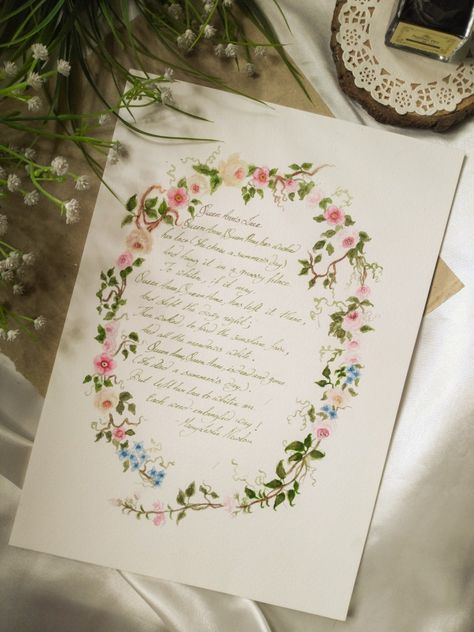 Queen Anne's Lace
Queen Anne, Queen Anne, has washed
her lace (She chose a summer's day)
And hung it in a grassy place
to whiten, if it may.
Queen Anne, Queen Anne, has left it there,
And slept the dewy night;
Then waked, to find the sunshine fair,
And all the meadows white.
Queen Anne, Queen Anne, is dead and gone
(She died a summer's day),
But left her lace to whiten on
Each weed-entangled way!
-Mary Leslie Newton